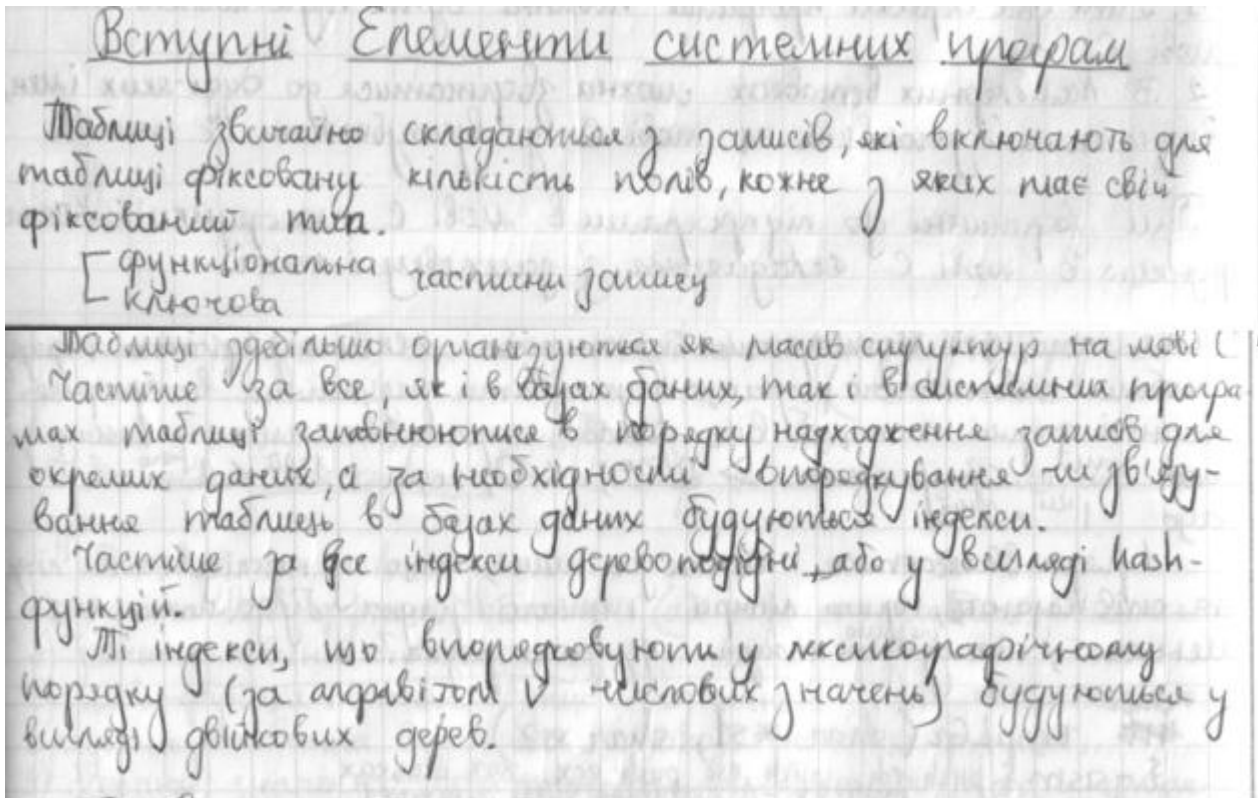 Вступні Елементи системних програм
Таблиці звичайно складаються з записів, які включають для
таблиці фіксовану кількість полів, кожне з яких має свій
фіксований тип.
[ функціональна
ключова частини запису
Таблиці здебільш організуються як масив структур на мові С
Частіше за все, як і в базах даних, так і в системних програ
мах таблиці заповнюються в порядку надходження записів для
окремих даних, а за необхідності впорядкування чи
вання таблиць в базах даних будуються індекси.
Частіше за все індекси деревоподібні, або у вигляді hash-
функцій.
Ті індекси, що впорядковують у лексикографічному
порядку (за алфавітом числових значень) будуються у
вигляді двійкових дерев.